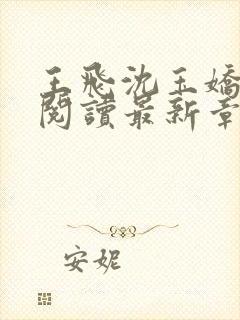 王飛沈玉嬌
閱讀最新章
安妮